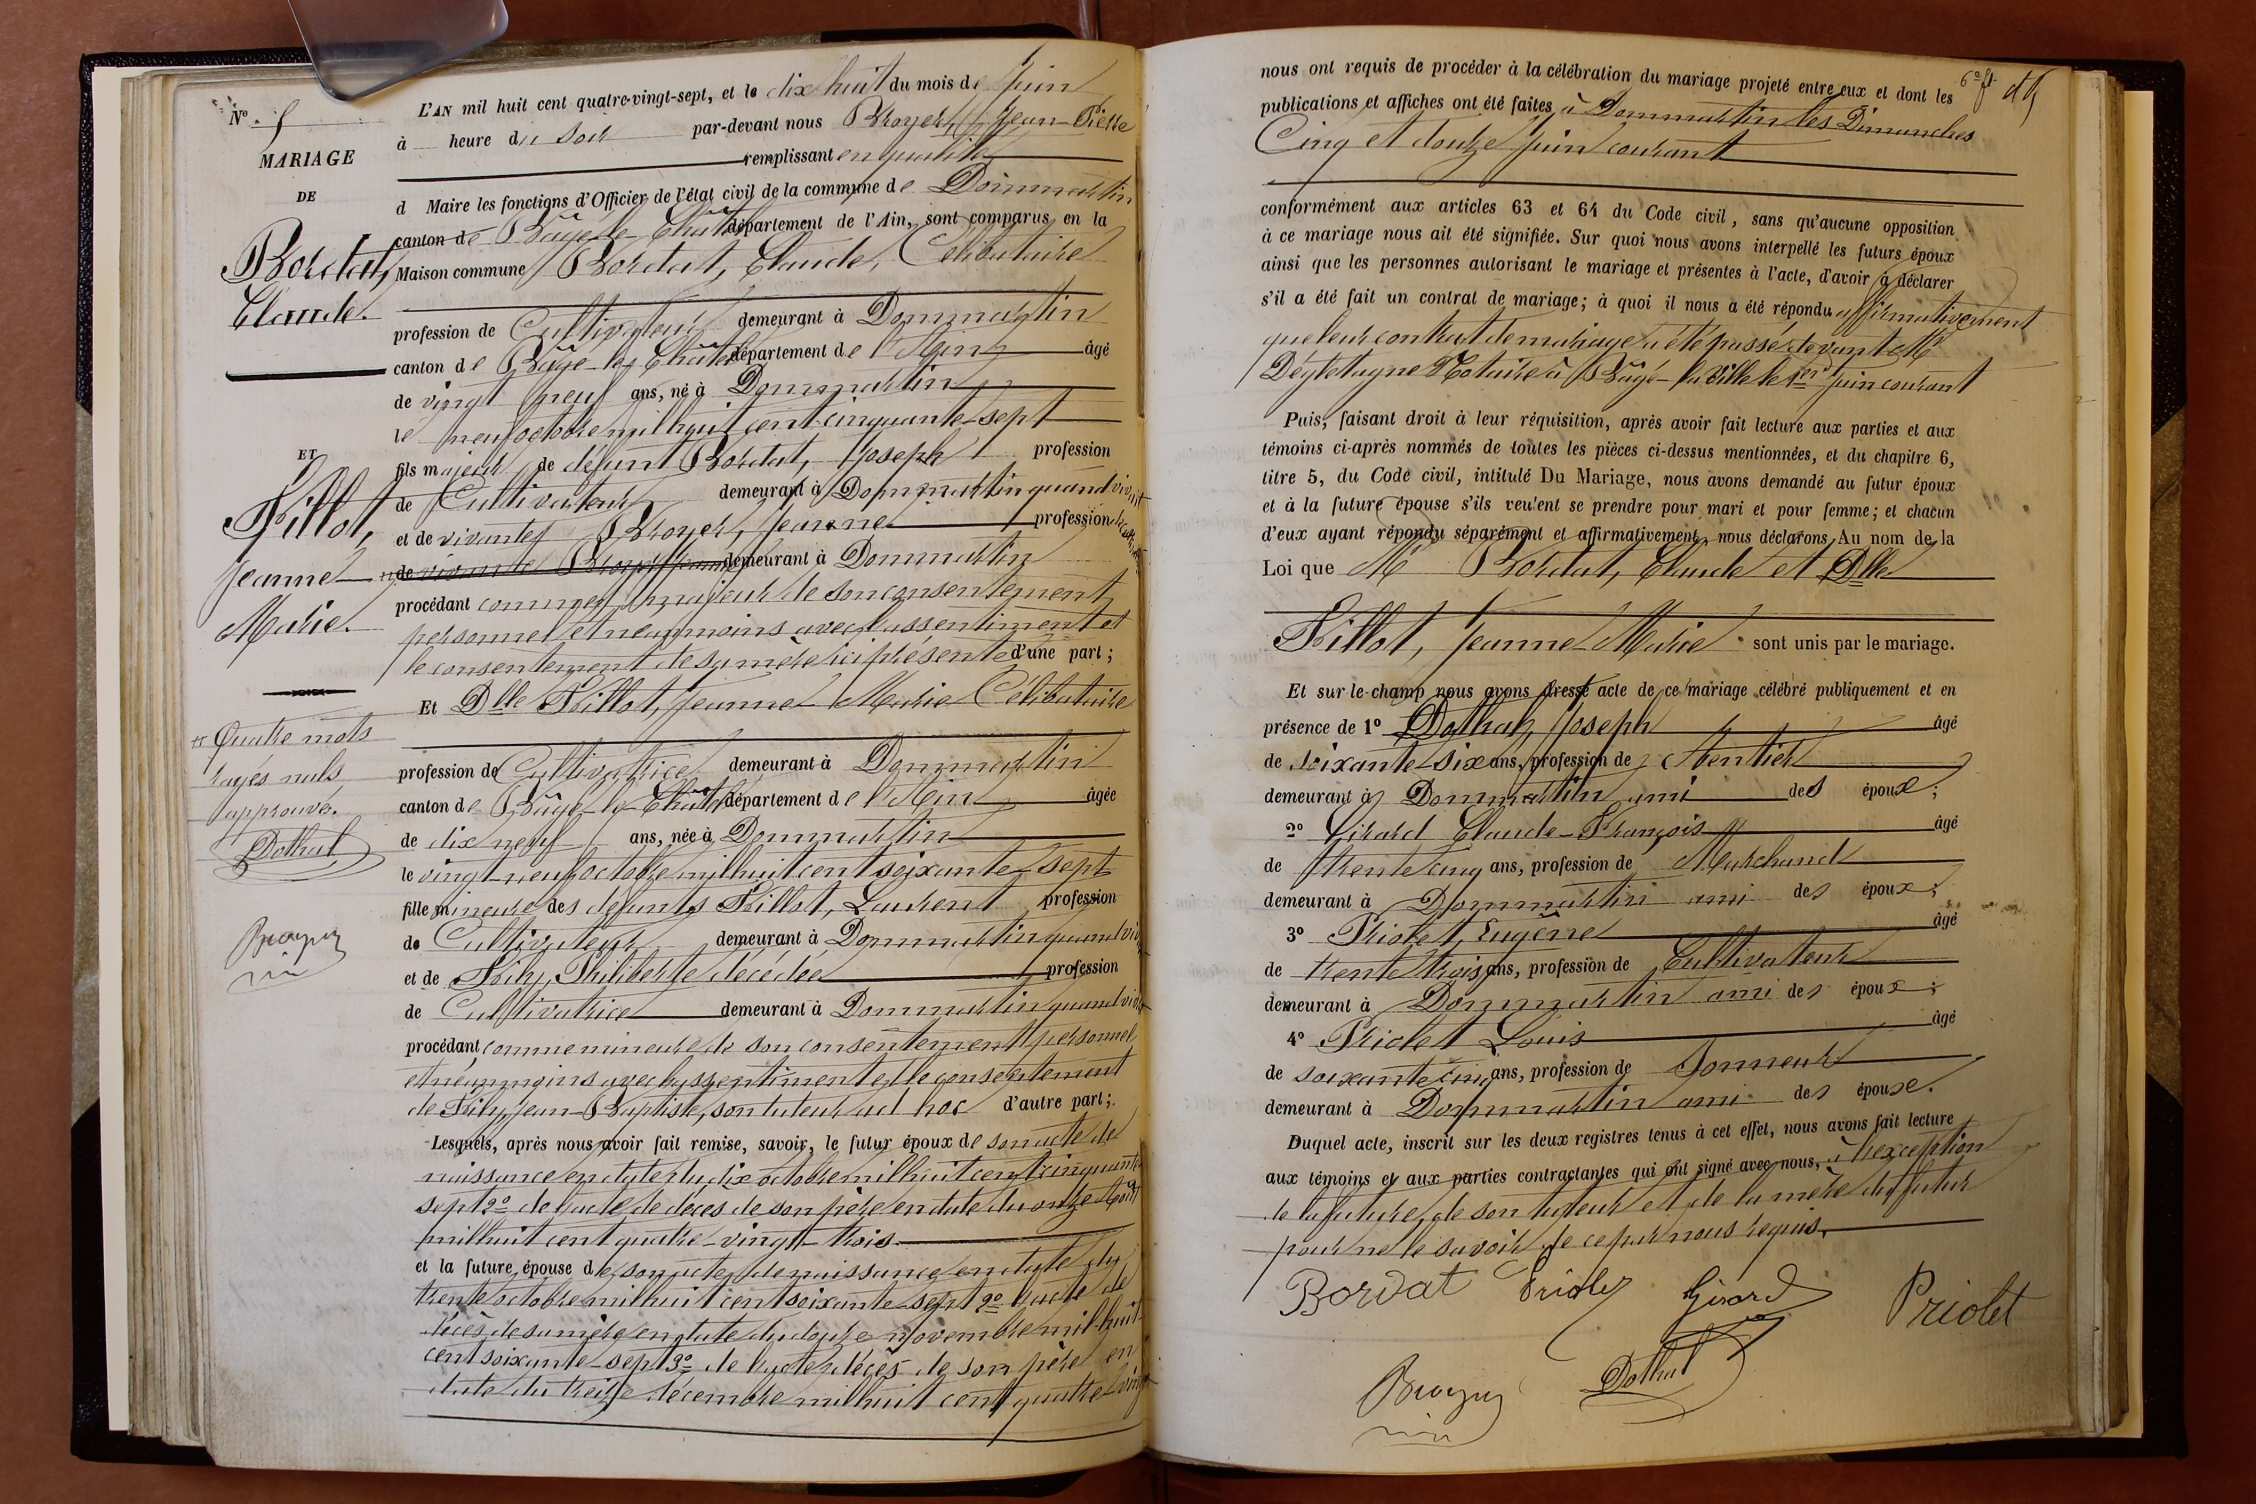 N° 5
MARIAGE
DE
Bordat,
Claude.
ET
Fillot,
Jeanne
Marie.
Quatre mots
rayés nuls
approuvés.
Dothal
Broyer
L'AN mil huit cent quatre-vingt-sept, et le dix huit du mois de Juin
à heure du soir par-devant nous Broyer, Jean Pierre
remplissant en qualité
d Maire les fonctions d'Officier de l'état civil de la commune de Dommartin
canton de Bâgé-le-Châtel département de l'Ain, sont comparus en la
Maison commune Bordat, Claude, Célibataire
profession de Cultivateur demeurant à Dommartin
canton de Bâgé-le-Châtel département de l'Ain âgé
de vingt neuf ans, né à Dommartin
le neuf octobre mil huit cent cinquante-sept
fils majeur de défunt Bordat, Joseph profession
de Cultivateur demeurant à Dommartin quand vivait
et de vivante Broyer, Jeanne profession
de vivante Broyer Jeanne demeurant à Dommartin
procédant comme majeur de son consentement
personnel et néanmoins avec l'assentiment et
le consentement de sa mère ici présente d'une part;
Et Dlle Fillot, Jeanne Marie Célibataire
profession de Cultivatrice demeurant à Dommartin
canton de Bâgé-le-Châtel département de l'Ain âgée
de dix neuf ans, née à Dommartin
le vingt-neuf octobre mil huit cent soixante-sept
fille mineure des défunts Fillot, Laurent profession
de Cultivateur demeurant à Dommartin quand vivait
et de Philiberte décédée profession
de Cultivatrice demeurant à Dommartin quand vivait
procédant comme mineure de son consentement personnel
et néanmoins avec l'assentiment et le consentement
de Jean-Baptiste, son tuteur ad hoc d'autre part;
Lesquels, après nous avoir fait remise, savoir, le futur époux de son acte de
naissance en date du dix octobre mil huit cent cinquante
sept 2° de l'acte de décès de son père en date du onze Août
mil huit cent quatre-vingt-trois
et la future épouse de son acte de naissance en date du
trente octobre mil huit cent soixante-sept 2° l'acte de
décès de sa mère en date du douze novembre mil huit
cent soixante-sept 3° de l'acte décès de son père en
date du treize décembre mil huit cent quatre vingt
6° ft
nous ont requis de procéder à la célébration du mariage projeté entre eux et dont les
publications et affiches ont été faites à Dommartin les Dimanches
Cinq et douze juin courant
conformément aux articles 63 et 64 du Code civil, sans qu'aucune opposition
à ce mariage nous ait été signifiée. Sur quoi nous avons interpellé les futurs époux
ainsi que les personnes autorisant le mariage et présentes à l'acte, d'avoir à déclarer
s'il a été fait un contrat de mariage; à quoi il nous a été répondu affirmativement
que leur contrat de mariage a été passé devant Me
Notaire à Bâgé-la-Ville le 1er juin courant
Puis, faisant droit à leur réquisition, après avoir fait lecture aux parties et aux
témoins ci-après nommés de toutes les pièces ci-dessus mentionnées, et du chapitre 6,
titre 5, du Code civil, intitulé Du Mariage, nous avons demandé au futur époux
et à la future épouse s'ils veulent se prendre pour mari et pour femme; et chacun
d'eux ayant répondu séparément et affirmativement, nous déclarons Au nom de la
Loi que Mr Bordat, Claude et Dlle
Fillot, Jeanne Marie sont unis par le mariage.
Et sur-le-champ nous avons dressé acte de ce mariage célébré publiquement et en
présence de 1° Dothal, Joseph âgé
de soixante-six ans, profession de Rentier
demeurant à Dommartin ami des époux;
2° Girard Claude-François âgé
de trente cinq ans, profession de Marchand
demeurant à Dommartin ami des époux;
3° Priolet, Eugène âgé
de trente trois ans, profession de Cultivateur
demeurant à Dommartin ami des époux;
4° Priolet Louis âgé
de soixante cinq ans, profession de Sonneur
demeurant à Dommartin ami des époux.
Duquel acte, inscrit sur les deux registres tenus à cet effet, nous avons fait lecture
aux témoins et aux parties contractantes qui ont signé avec nous, à l'exception
de la future, de son tuteur et de la mère du futur
pour ne le savoir de ce par nous requis.
Bordat Priolet Girard Priolet
Broyer Dothal